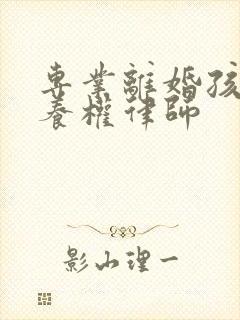 專業離婚孩
養權律師
影山理一